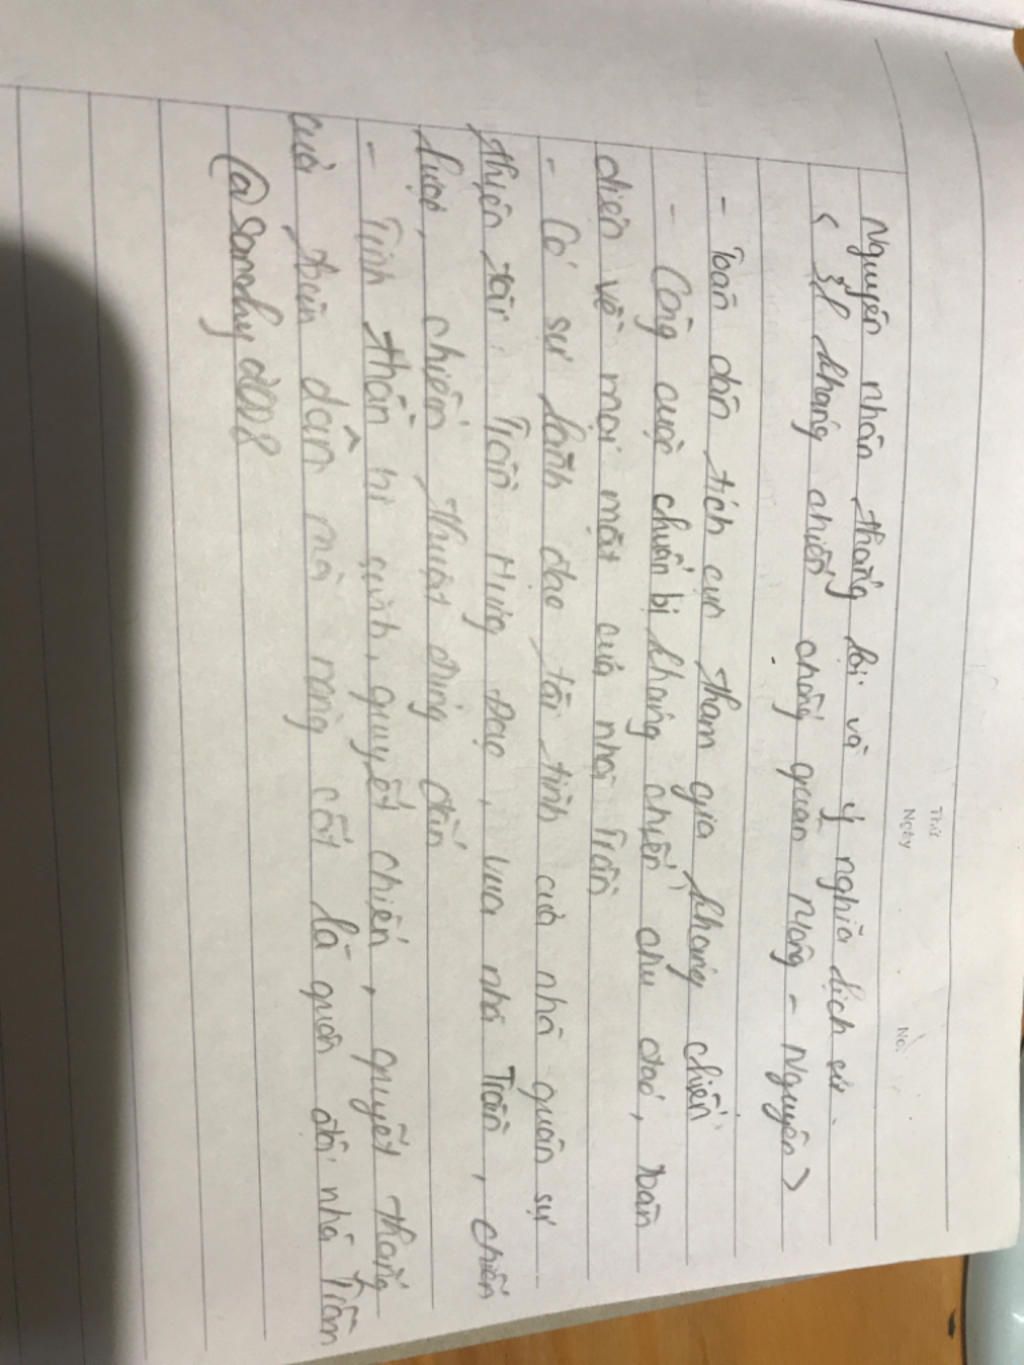 Thứ
Ngày No.
Nguyên nhân thắng lợi và ý nghĩa lịch sử
( 3L kháng chiến chống quân Mông - Nguyên )
- Toàn dân tích cực tham gia kháng chiến
- Công cuộc chuẩn bị kháng chiến chu đáo, toàn
diện về mọi mặt của nhà Trần
- Có sự lãnh đạo tài tình của nhà quân sự
thiên tài: Trần Hưng Đạo, vua nhà Trần, chiến
lược, chiến thuật đúng đắn
- Tinh thần hi sinh, quyết chiến, quyết thắng
của toàn dân mà nòng cốt là quân đội nhà Trần